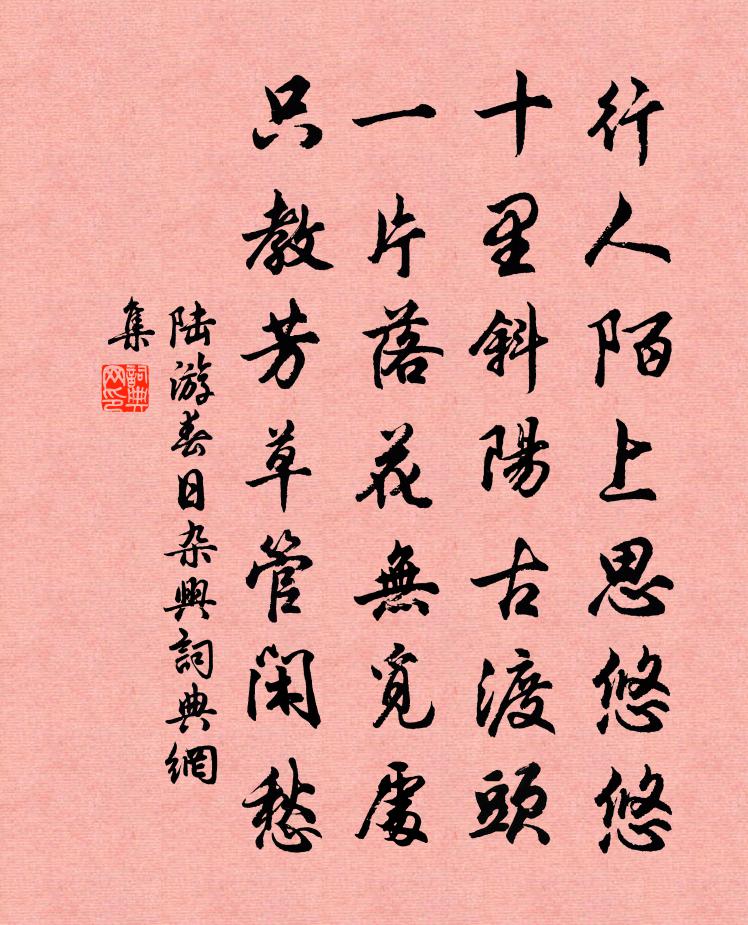 行人陌上思悠悠
十里斜陽古渡頭
一片落花無覓處
只教芳草管闲愁
陆游春日杂興詞典網
集
詞典
网印